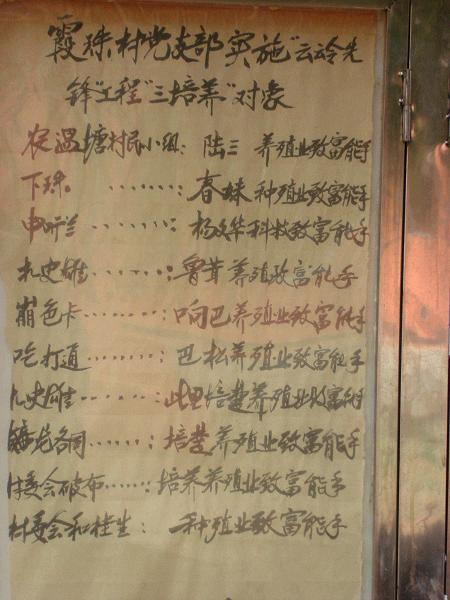 霞珠村党支部实施"云岭先
锋"工程"三培养"对象
农温塘村民小组：陆三 养殖业致富能手
下珠 ........：春妹 种殖业致富能手
..........：杨文华科技致富能手
扎史雄........：鲁茸养殖致富能手
崩色卡........：响巴养殖业致富能手
吃打通........：巴松养殖业致富能手
史雄........：此里培楚养殖业致富能手
各同......：培楚养殖业致富能手
村委会破布......：培养养殖业致富能手
村委会和桂生： 种殖业致富能手